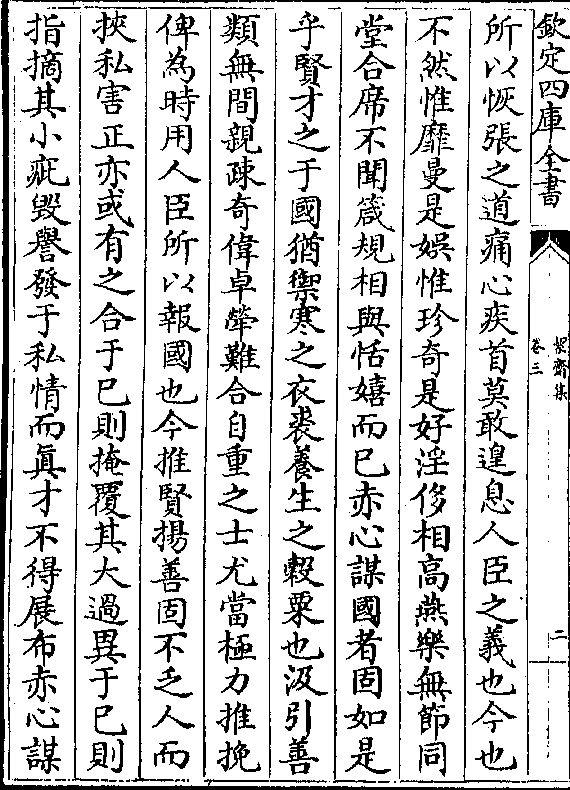 欽定四庫全書
絜齋集
卷三
二
所以恢張之道痛心疾首莫敢遑息人臣之義也今也
不然惟靡曼是娛惟珍奇是好淫侈相高燕樂無節同
堂合席不聞箴規相與恬嬉而已赤心謀國者固如是
乎賢才之于國猶禦寒之衣裘養生之穀粟也汲引善
類無間親疎奇偉卓犖難合自重之士尤當極力推挽
俾為時用人臣所以報國也今推賢揚善固不乏人而
挾私害正亦或有之合于已則掩覆其大過異于已則
指摘其小疵毀譽發于私情而真才不得展布赤心謀